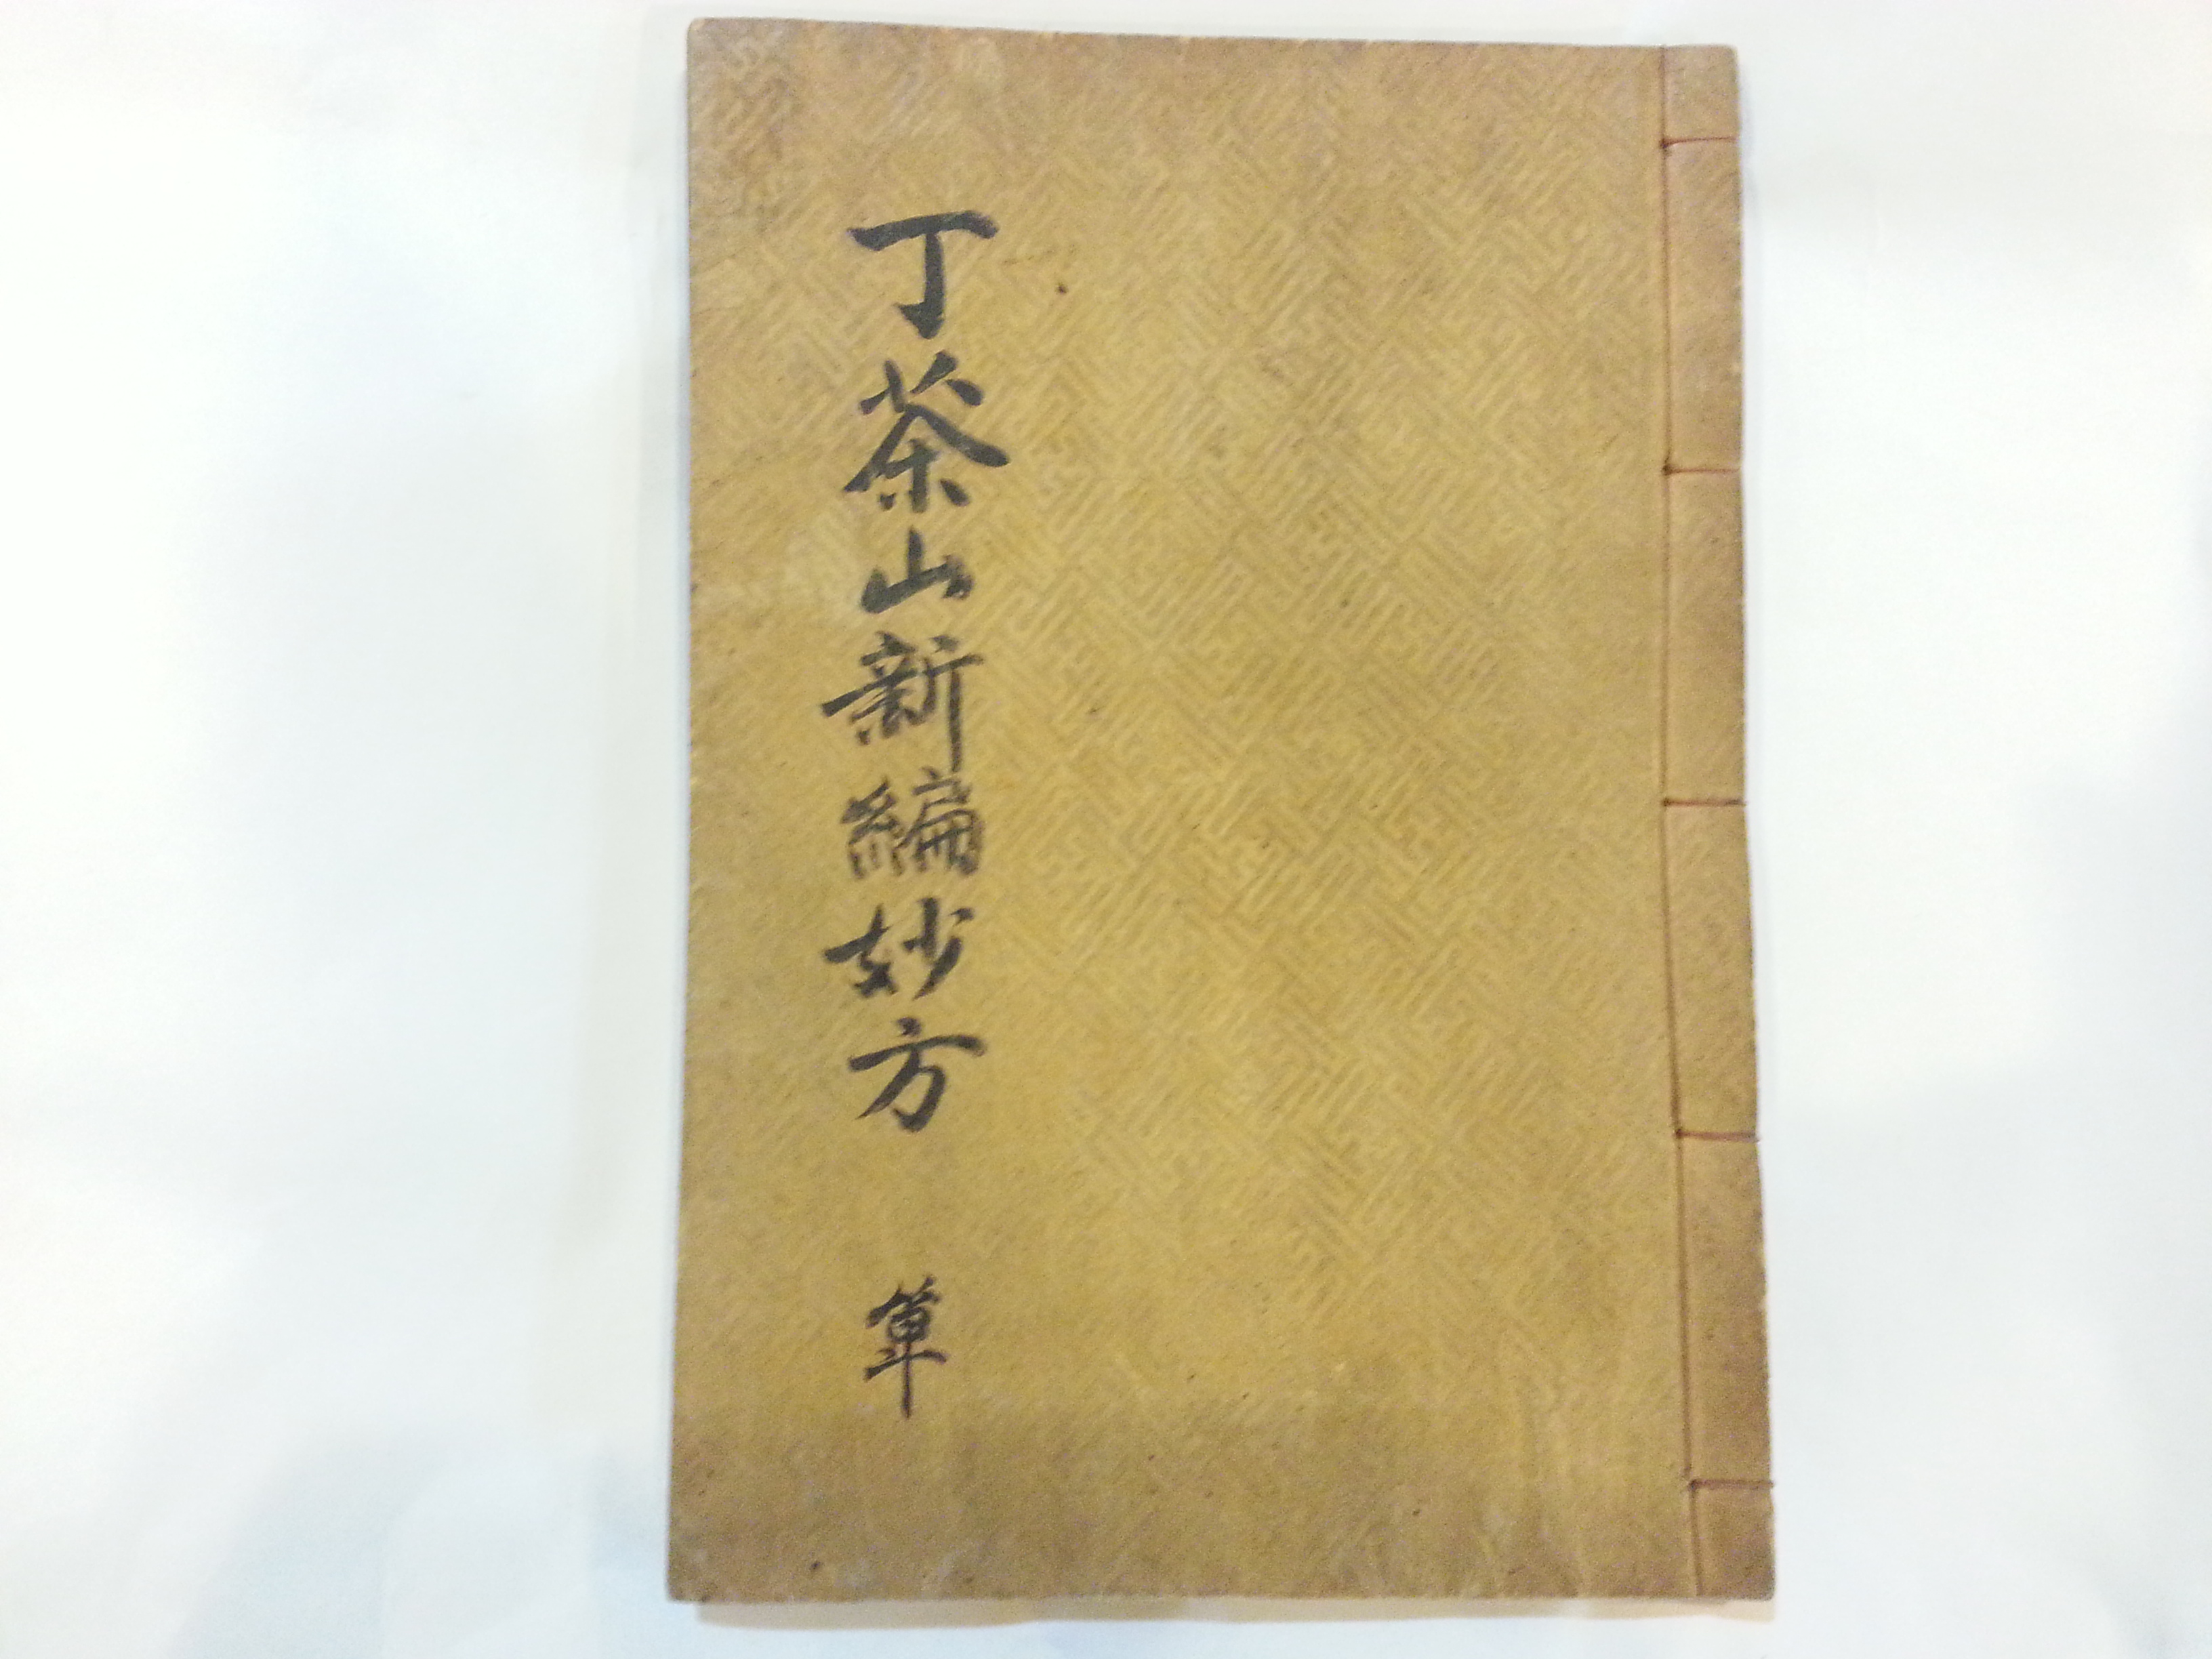 丁茶山新編妙方
單